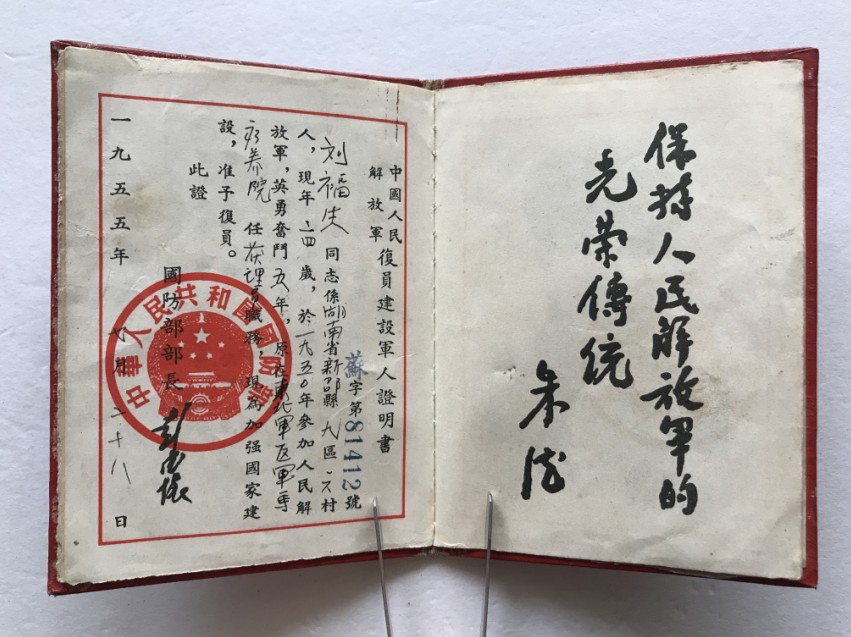 保持人民解放軍的
光榮傳統
朱德
中國人民
解放軍
復員建設軍人證明書
蘇字第81412號
刘福生同志係湖南省新邵縣九區村
人，現年二四歲，於一九五〇年參加人民解
放軍，英勇奮鬥五年，原在東北軍区軍
疗养院任护理員職務，現為加强國家建
設，准予復員。
此證
國防部部長 彭德懷
中華人民共和國國防部
一九五五年月二十八日